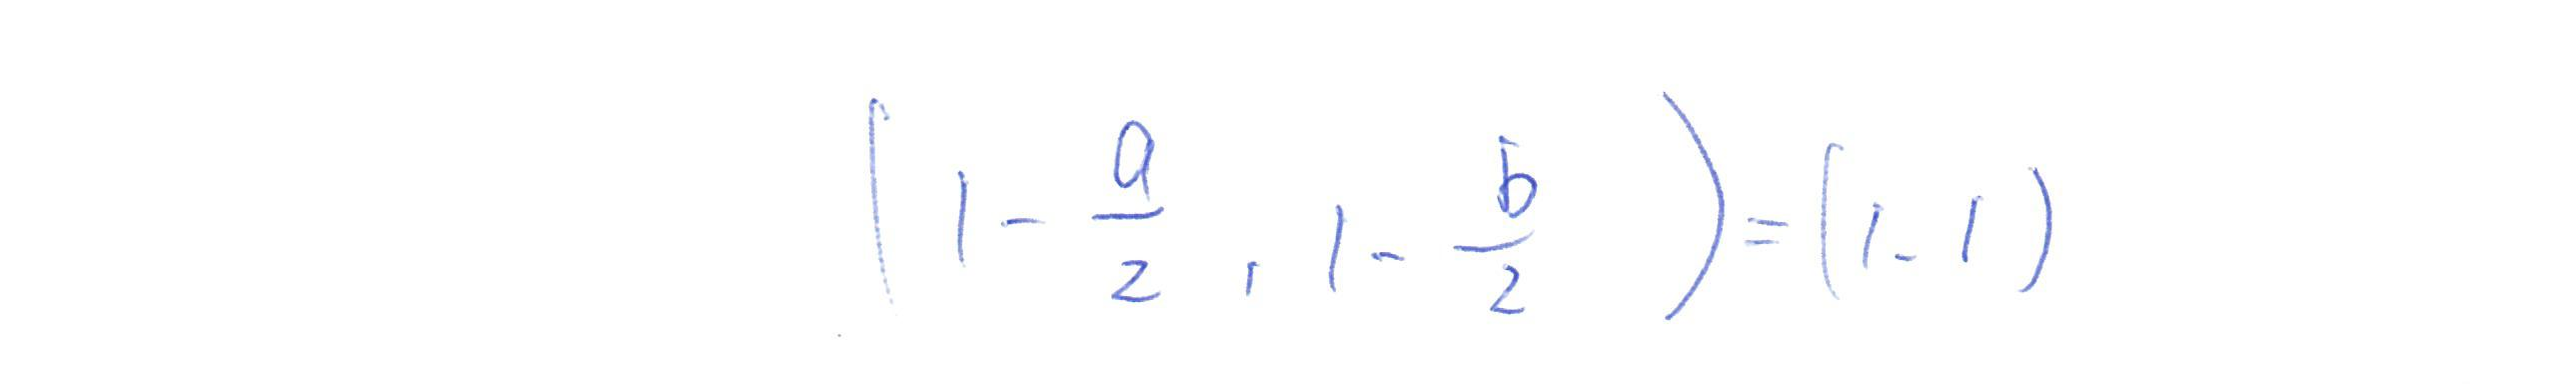 (1 - a/2 , 1 - b/2) = (1 - 1)